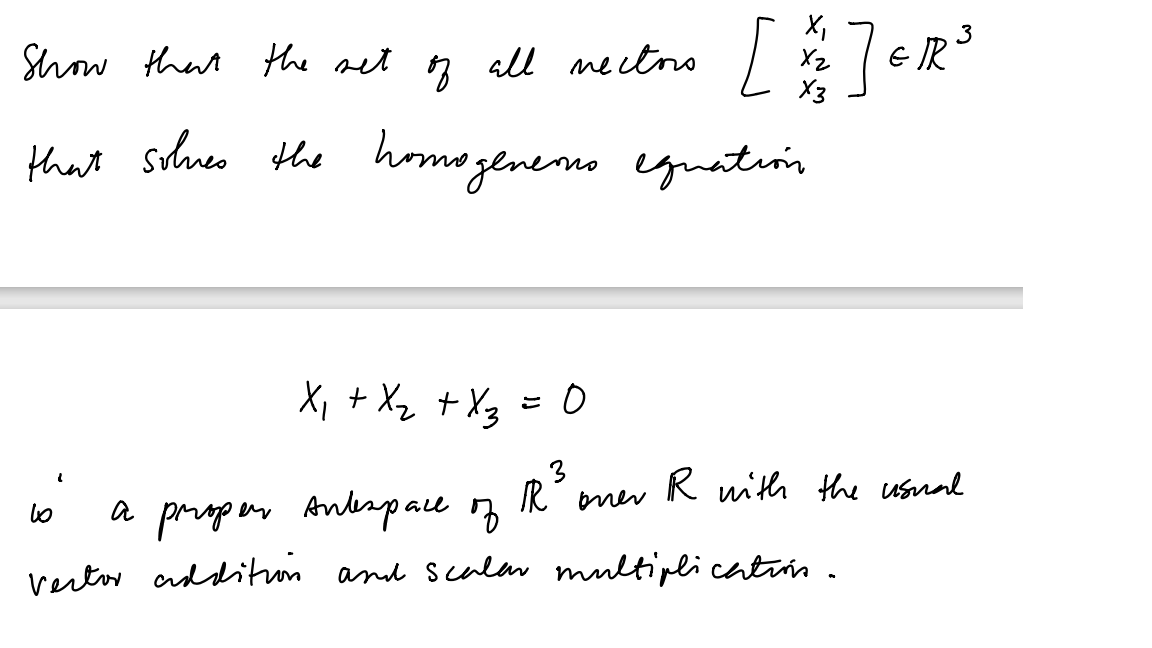 Show that the set of all vectors [ x₁ x₂ x₃ ] ∈ ℝ³
that solves the homogeneous equation
x₁ + x₂ + x₃ = 0
is a proper subspace of ℝ³ over ℝ with the usual
vector addition and scalar multiplication.